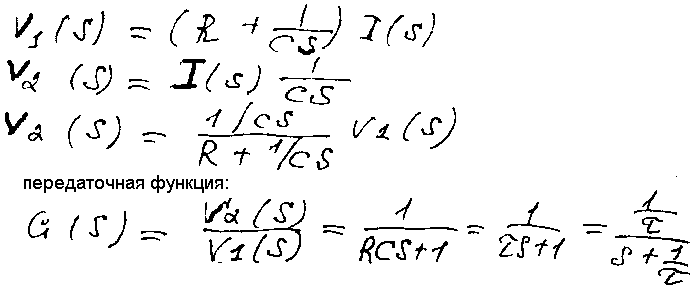 V₁(S) = (R + 1/CS) I(S)
V₂(S) = I(S) 1/CS
V₂(S) = (1/CS)/(R + 1/CS) V1(S)
передаточная функция:
G(S) = V₂(S)/V1(S) = 1/(RCS+1) = 1/(τS+1) = (1/τ)/(S + 1/τ)